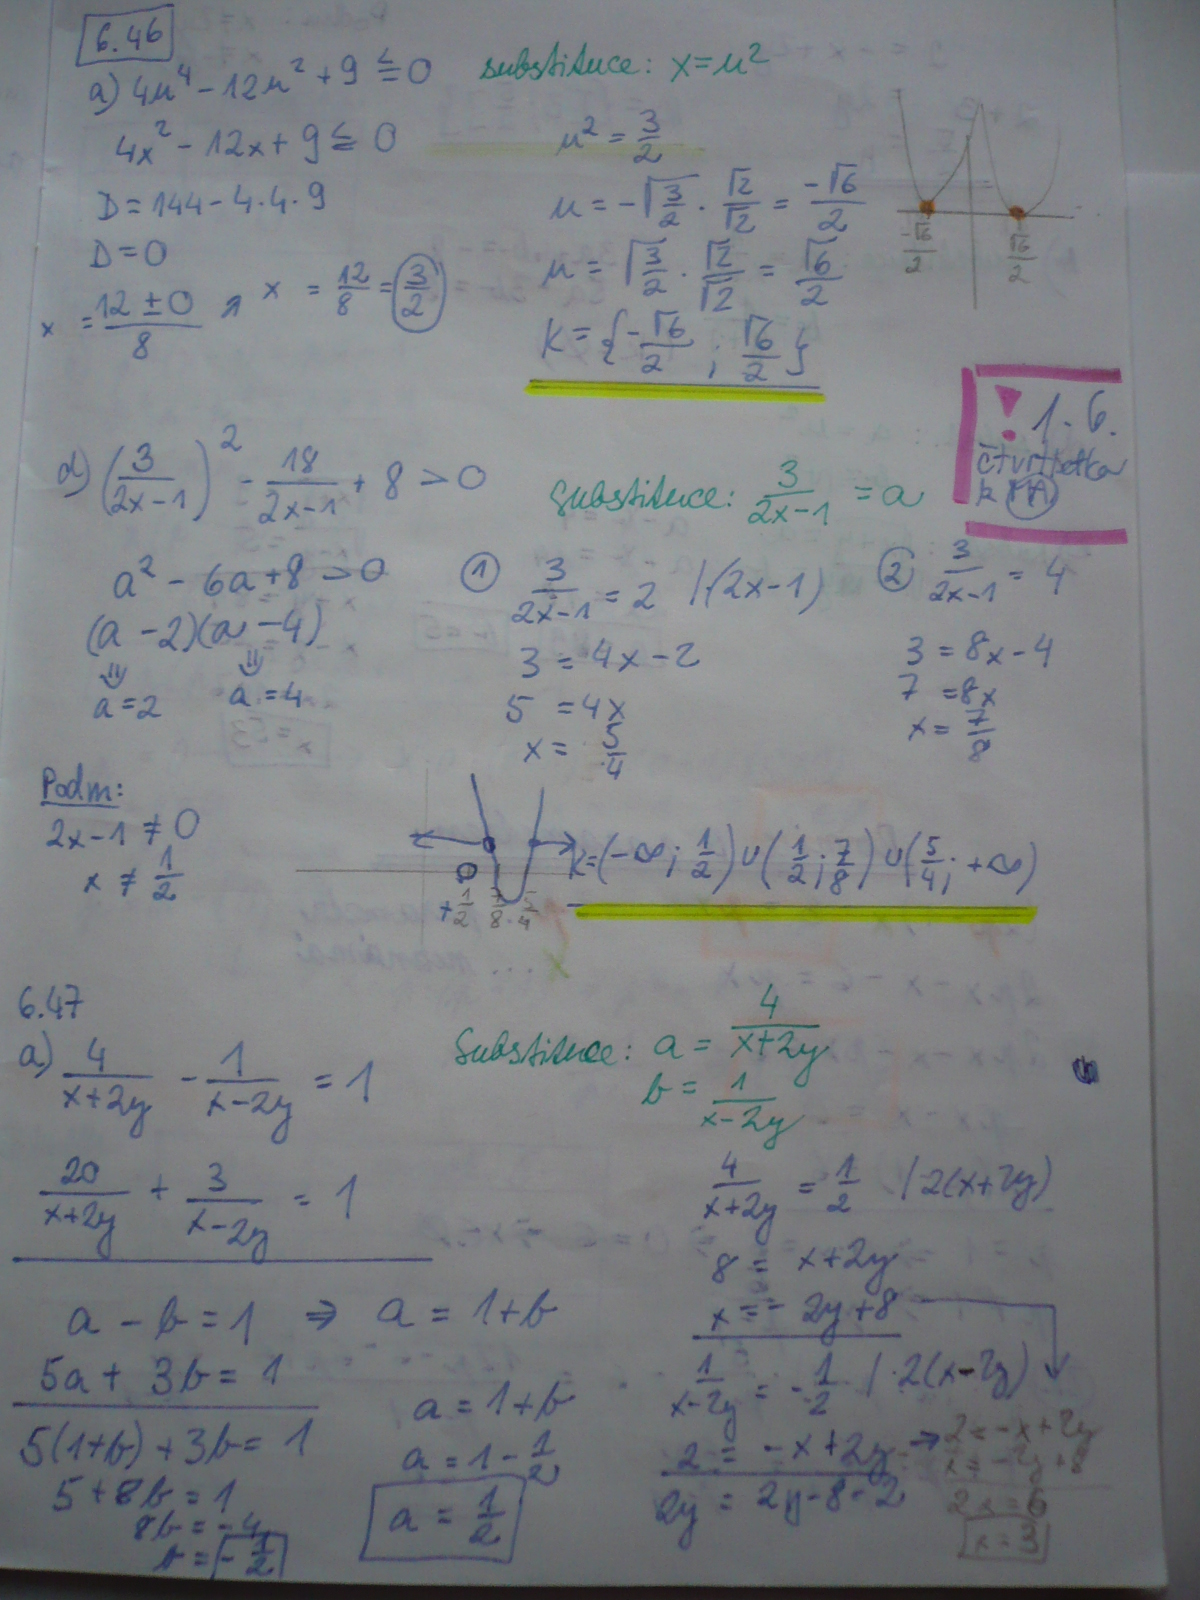 6.46
a) 4u⁴ - 12u² + 9 ≦ 0
substituce: x = u²
4x² - 12x + 9 ≦ 0
D = 144 - 4·4·9
D = 0
x = (12 ± 0)/8
x = 12/8 = 3/2
u² = 3/2
u = -√(3/2) · √2/√2 = -√6/2
u = √(3/2) · √2/√2 = √6/2
K = {-√6/2 ; √6/2}
-√6/2 √6/2
! 1.6.
čtvrtletka
z MA
d) (3/(2x-1))² - 18/(2x-1) + 8 > 0
substituce: 3/(2x-1) = a
a² - 6a + 8 > 0
(a - 2)(a - 4)
⇓ ⇓
a = 2 a = 4
① 3/(2x-1) = 2 /·(2x-1)
3 = 4x - 2
5 = 4x
x = 5/4
② 3/(2x-1) = 4
3 = 8x - 4
7 = 8x
x = 7/8
Podm:
2x-1 ≠ 0
x ≠ 1/2
+1/2 7/8 5/4
K = (-∞; 1/2) ∪ (1/2; 7/8) ∪ (5/4; +∞)
6.47
a) 4/(x+2y) - 1/(x-2y) = 1
20/(x+2y) + 3/(x-2y) = 1
Substituce: a = 4/(x+2y)
b = 1/(x-2y)
a - b = 1 ⇒ a = 1+b
5a + 3b = 1
5(1+b) + 3b = 1
5 + 8b = 1
8b = -4
b = -1/2
a = 1+b
a = 1 - 1/2
a = 1/2
4/(x+2y) = 1/2 /·2(x+2y)
8 = x+2y
x = -2y+8
1/(x-2y) = -1/2 /·2(x-2y)
2 = -x+2y →
2y = 2y-8-2
2 = -x+2y
x = -2y+8
2x = 6
x = 3